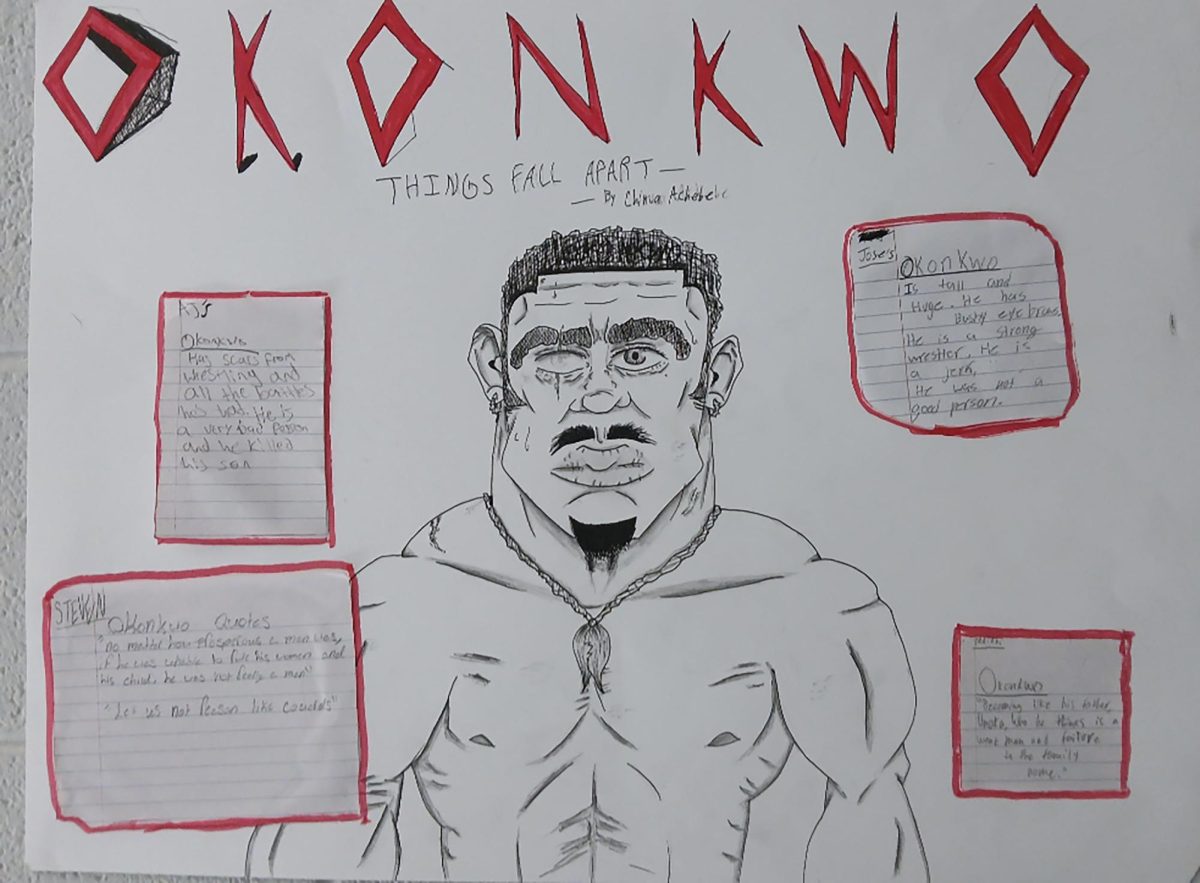 OKONKWO
THINGS FALL APART —
— By Chinua Achebebe
AJ's
Okonkwo
Has scars from
wrestling and
all the battles
his had. He is
a very bad person
and he killed
his son
Jose's
Okonkwo
Is tall and
Huge. He has
Bushy eye brows
He is a strong
wrestler. He is
a jerk,
He was not a
good person.
STEVEN
Okonkwo Quotes
"no matter how prosperous a man was,
if he was unable to rule his women and
his child, he was not really a man"
"Let us not reason like cowards"
Okonkwo
"Becoming like his father,
Unoka, who he things is a
weak man and failure
to the family
name."